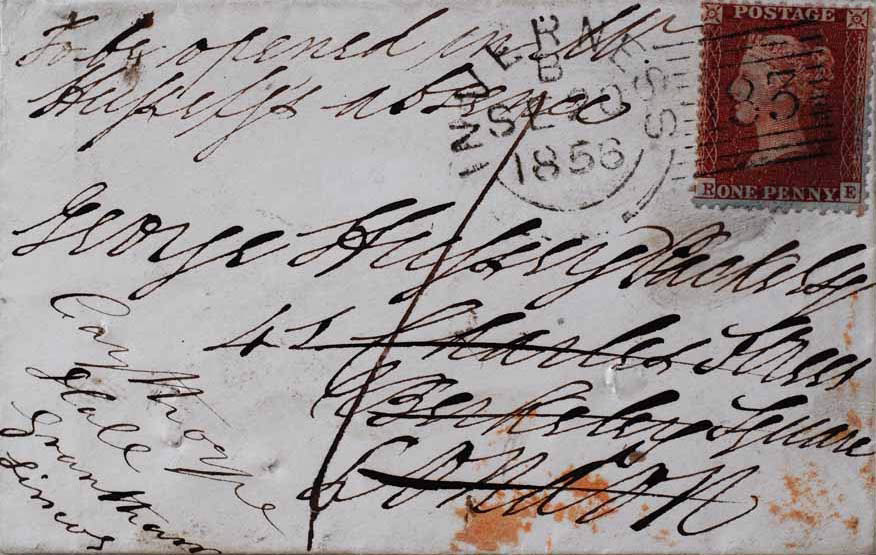 To be opened in Mr
Hussey's absence
INVERNESS
B
SE 20
1856
POSTAGE
83
R ONE PENNY. E
George Hussey Packe Esq
41 Charles Street
Berkeley Square
London
Caythorpe
Hall
Grantham
Lincos